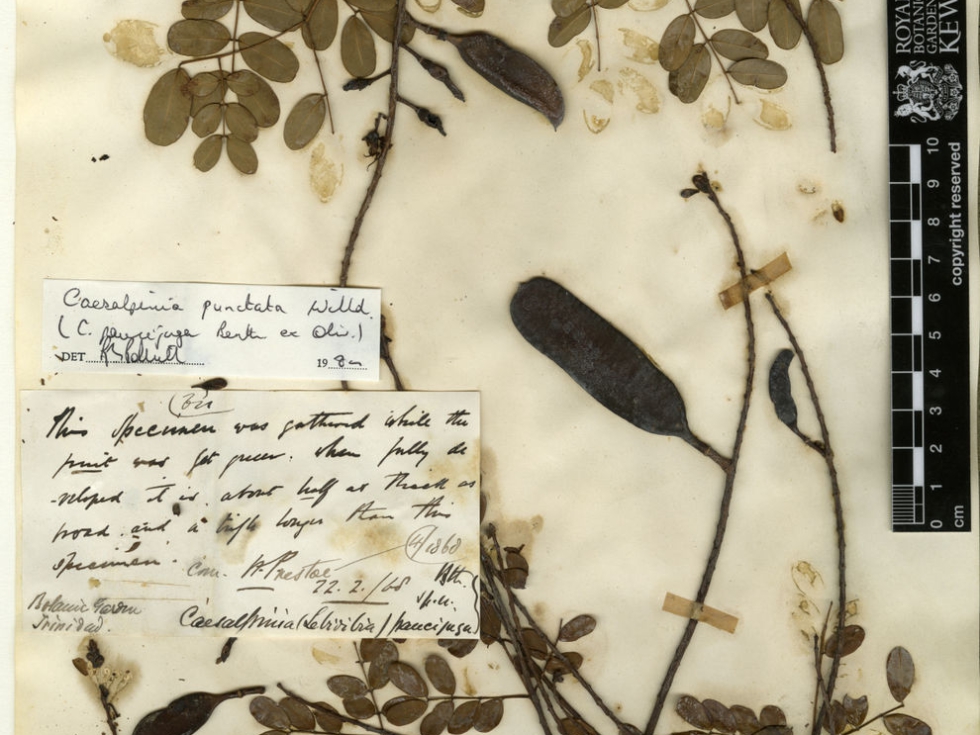 Caesalpinia punctata Willd.
(C. paucijuga Benth ex Oliv.)
DET
19 80
This specimen was gathered while the
fruit was yet green. when fully de
-veloped it is about half as thick as
broad and a trifle longer than this
specimen.
com. H. Prestoe
22.2./68
(4)1868
Bth.
sp. n.
Botanic Garden
Trinidad.
Caesalpinia (Lebidibia) paucijuga
ROYAL
BOTANIC
GARDENS
KEW
copyright reserved
10
9
8
7
6
5
4
3
2
1
0
cm